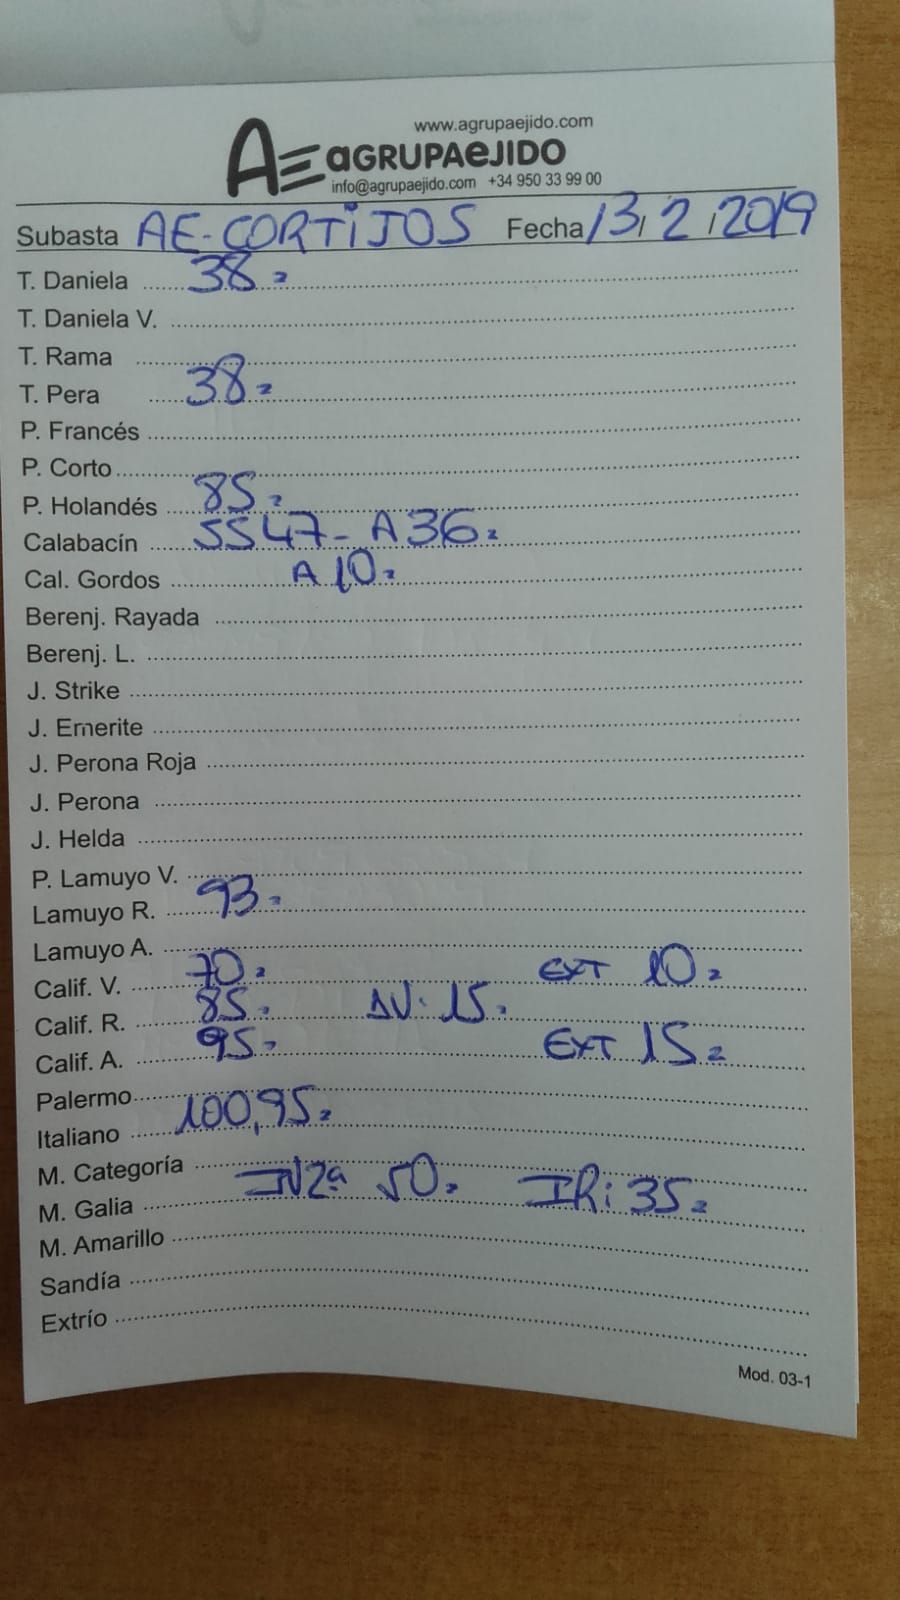 www.agrupaejido.com
AE aGRUPAeJIDO
info@agrupaejido.com +34 950 33 99 00
Subasta AE-CORTiJOS Fecha 13/2/2019
T. Daniela 38
T. Daniela V.
T. Rama
T. Pera 38
P. Francés
P. Corto
P. Holandés 85
Calabacín 5547-A36
Cal. Gordos A 10
Berenj. Rayada
Berenj. L.
J. Strike
J. Emerite
J. Perona Roja
J. Perona
J. Helda
P. Lamuyo V.
Lamuyo R. 93
Lamuyo A.
Calif. V. 70 EXT 10
Calif. R. 85 15
Calif. A. 95 EXT 15
Palermo
Italiano 100,95
M. Categoría
M. Galia 50 IRi 35
M. Amarillo
Sandía
Extrío
Mod. 03-1